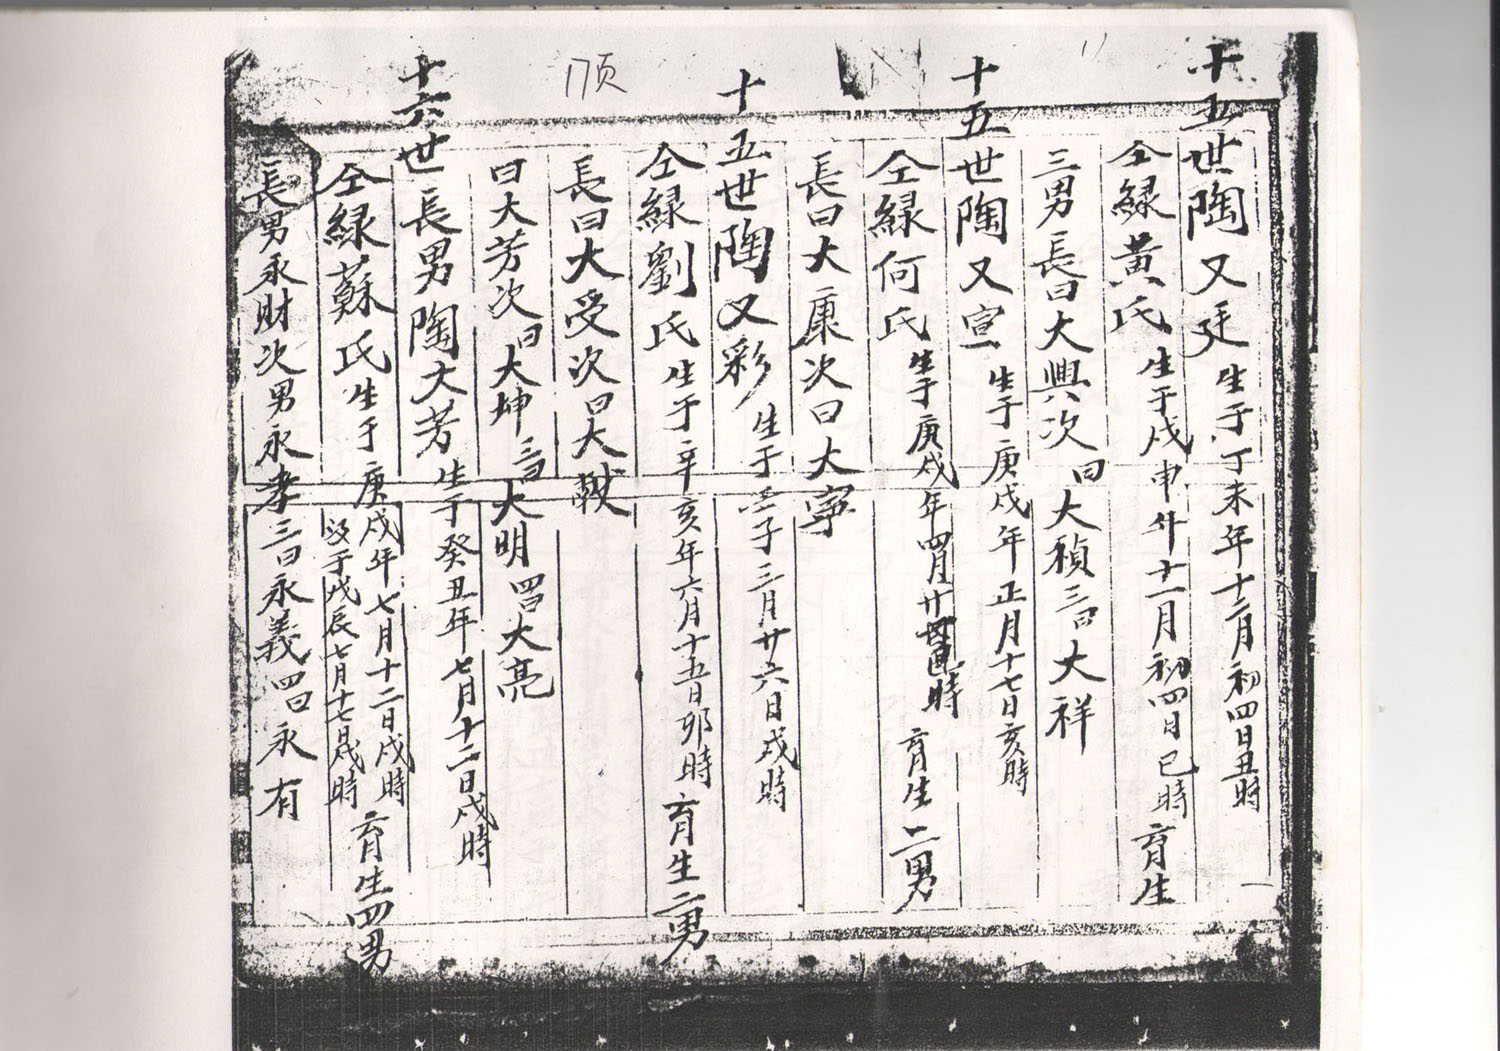 十五世陶又廷生于丁未年十二月初四日丑時
仝緑黃氏生于戊申年十一月初四日巳時育生
三男長曰大興次曰大禎三曰大祥
十五世陶又宣生于庚戌年正月十七日亥時
仝緑何氏生于庚戌年四月廿 時育生二男
長曰大康次曰大寧
十五世陶又彩生于壬子三月廿六日戌時
仝緑劉氏生于辛亥年六月十五日卯時育生二男
長曰大受次曰大
曰大芳次曰大坤三曰大明四曰大亮
十六世長男陶大芳生于癸丑年七月十二日戌時
仝緑蘇氏生于庚戌年七月十二日戌時育生四男
歿于戊辰七月十七日戌時
長男永財次男永孝三曰永義四曰永有
17页